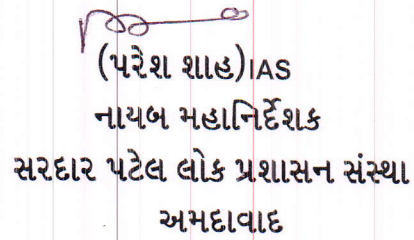 (પરેશ શાહ)IAS
નાયબ મહાનિર્દેશક
સરદાર પટેલ લોક પ્રશાસન સંસ્થા
અમદાવાદ